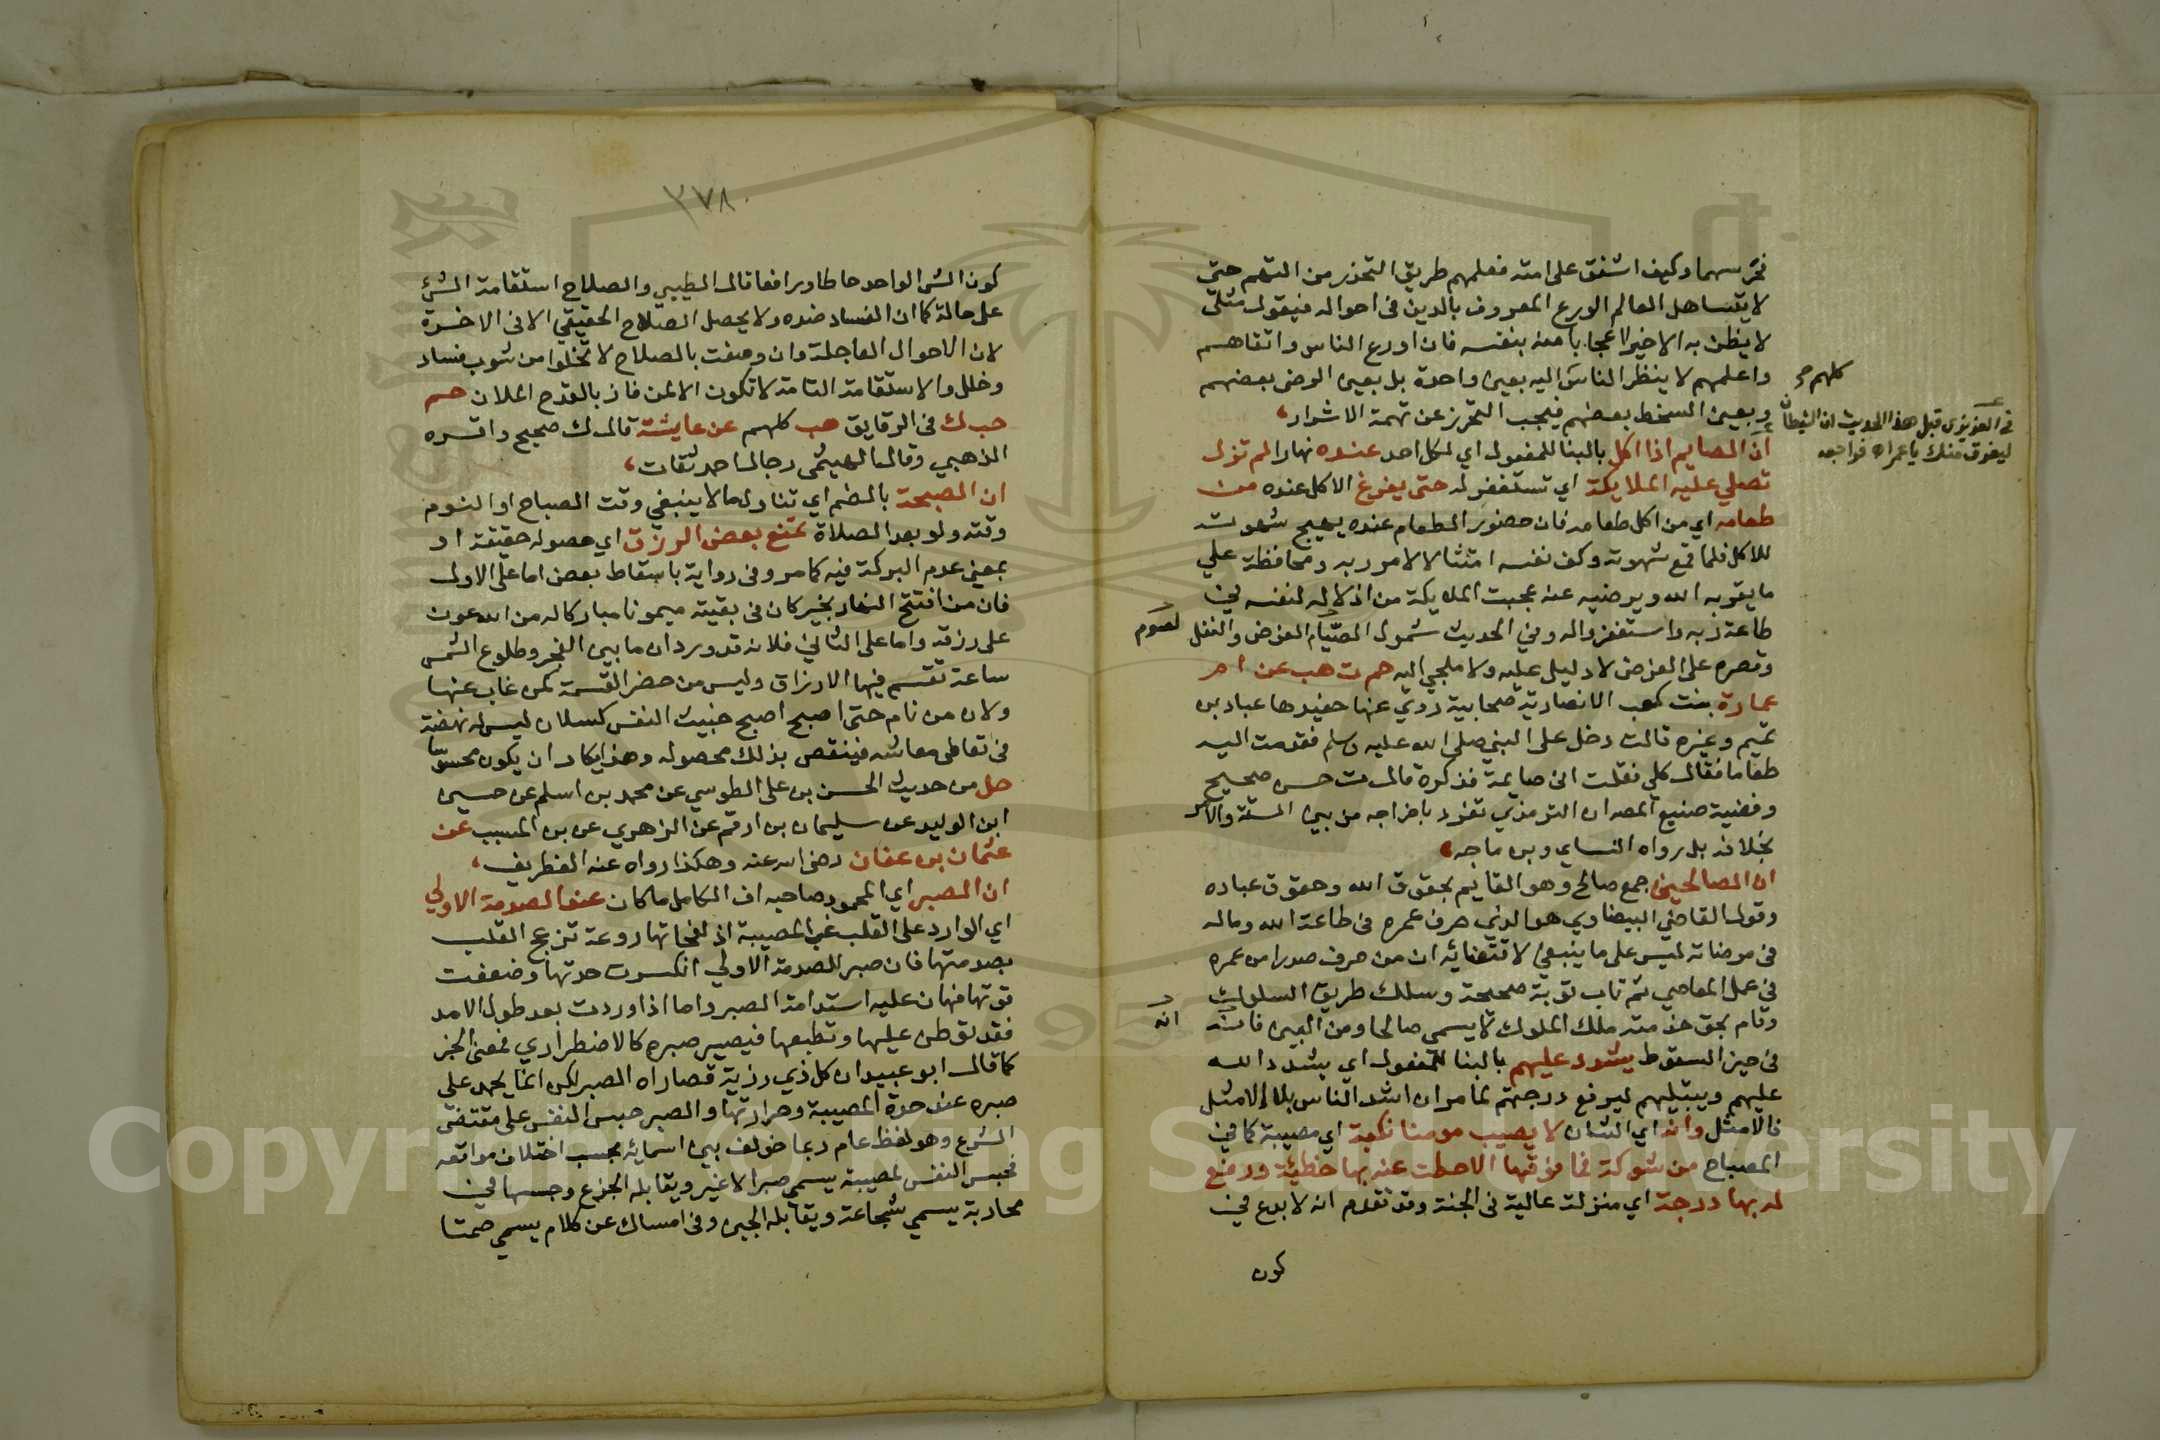 فحرسهما وكيف اشفق على امته فعلمهم طريق التحذر من التهم حتى
لا يتساهل العالم الورع المعروف بالدين فى احواله فيقول مثلى
لا يظن به الا خيرا اعجابا منه بنفسه فان اورع الناس واتقاهم
واعلمهم لا ينظر الناس اليه بعين واحدة بل بعين الرضى بعضهم
وبعين السخط بعضهم فيجب التحرز عن تهمة الاشرار
ان الصايم اذا اكل بالبنا للمفعول اي لكل احد عنده نهارا لم تزل
تصلي عليه الملايكة اي تستغفر له حتى يفرغ الاكل عنده من
طعامه اي من اكل طعامه فان حضور الطعام عنده يهيج شهوته
للاكل فلما قمع شهوته وكف نفسه امتثالا لامر ربه ومحافظة علي
ما يقربه الله ويرضيه عنه عجبت الملايكة من اذلاله لنفسه في
طاعة ربه واستغفروا له وفي الحديث شمول الصيام الفرض والنفل
وقصره على الفرض لا دليل عليه ولا ملجي اليه حم ت هب عن ام
عمارة بنت كعب الانصارية صحابية روي عنها حفيدها عباد بن
تميم وغيره قالت دخل على النبي صلى الله عليه وسلم فقدمت اليه
طعاما فقال كلي فقلت انى صايمة فذكره قال ت حسن صحيح
وقضية صنيع المصم ان الترمذي تفرد باخراجه من بين الستة والامر
بخلافه بل رواه النساي وبن ماجه
ان الصالحين جمع صالح وهو القايم بحقوق الله وحقوق عباده
وقول القاضي البيضاوي هو الذي صرف عمره فى طاعة الله وماله
فى مرضاته ليس على ما ينبغي لاقتضايه ان من صرف صدرا من عمره
في عمل المعاصي ثم تاب توبة صحيحة وسلك طريق السلوك
وقام بحق خدمة ملك الملوك لا يسمي صالحا ومن البين فانه
فى حيز السقوط يشدد عليهم بالبنا للمفعول اي يشدد الله
عليهم ويبتليهم ليرفع درجتهم لما مر ان اشد الناس بلا الامثل
فالامثل وانه اي الشان لا يصيب مومنا نكبة اي مصيبة كما في
المصباح من شوكة فما فوقها الا حطت عنه بها خطيئة ورفع
له بها درجة اي منزلة عالية فى الجنة وقد تقدم انه لا بدع في
كون
كلهم صح
فى العزيزى قبل هذا الحديث ان الشيطان
ليفرق منك يا عمر اه فراجعه
لصوم
انه
٣٧٨
كون الشى الواحد حاطا ورافعا قال الطيبي والصلاح استقامة الشئ
على حالة كما ان الفساد ضده ولا يحصل الصلاح الحقيقي الا فى الاخرة
لان الاحوال العاجلة وان وصفت بالصلاح لا تخلوا من شوب فساد
وخلل والاستقامة التامة لا تكون الا لمن فاز بالقدح الملان حم
حب ك فى الرقايق هب كلهم عن عايشة قال ك صحيح واقره
الذهبي وقال الهيثمى رجال احد ثقات
ان الصبحة بالضم اي تناول ما لا ينبغي وقت الصباح او النوم
وقته ولو بعد الصلاة تمنع بعض الرزق اي حصوله حقيقة او
بمعنى عدم البركة فيه كما مر وفى رواية باسقاط بعض اما على الاول
فان من افتتح النهار بخير كان فى بقيته ميمونا مباركا له من الله عون
على رزقه واما على الثاني فلانه قد ورد ان ما بين الفجر وطلوع الشمس
ساعة تقسم فيها الارزاق وليس من حضر القسمة كمن غاب عنها
ولان من نام حتى اصبح اصبح خبيث النفس كسلان ليس له نهضة
فى تعاطى معاشه فينقص بذلك محصوله وهذا يكاد ان يكون محسوسا
حل من حديث الحسن بن على الطوسي عن محمد بن اسلم عن حسين
ابن الوليد عن سليمان بن ارقم عن الزهري عن بن المسيب عن
عثمان بن عفان رضى الله عنه وهكذا رواه عنه الغطريف
ان الصبر اي المحمود صاحبه اف الكامل ما كان عند الصدمة الاولي
اي الوارد على القلب غب المصيبة اذ لفجاتها روعة تزعج القلب
بصدمتها فان صبر للصدمة الاولي انكسرت حدتها وضعفت
قوتها فهان عليه استدامة الصبر واما اذا وردت بعد طول الامد
فقد توطن عليها وتطبعها فيصير صبره كالاضطراري فمعنى الخبر
كما قال ابو عبيد ان كل ذي رزية قصاراه الصبر لكن انما يحمد على
صبره عند حدة المصيبة وحرارتها والصبر حبس النفس على مقتضى
الشرع وهو لفظ عام ربما خولف بين اسمائه بحسب اختلاف مواقعه
فحبس النفس لمصيبة يسمي صبرا لا غير ويقابله الجزع وحبسها في
محاربة يسمي شجاعة ويقابله الجبن وفى امساك عن كلام يسمي صمتا
Copyright © King Saud University